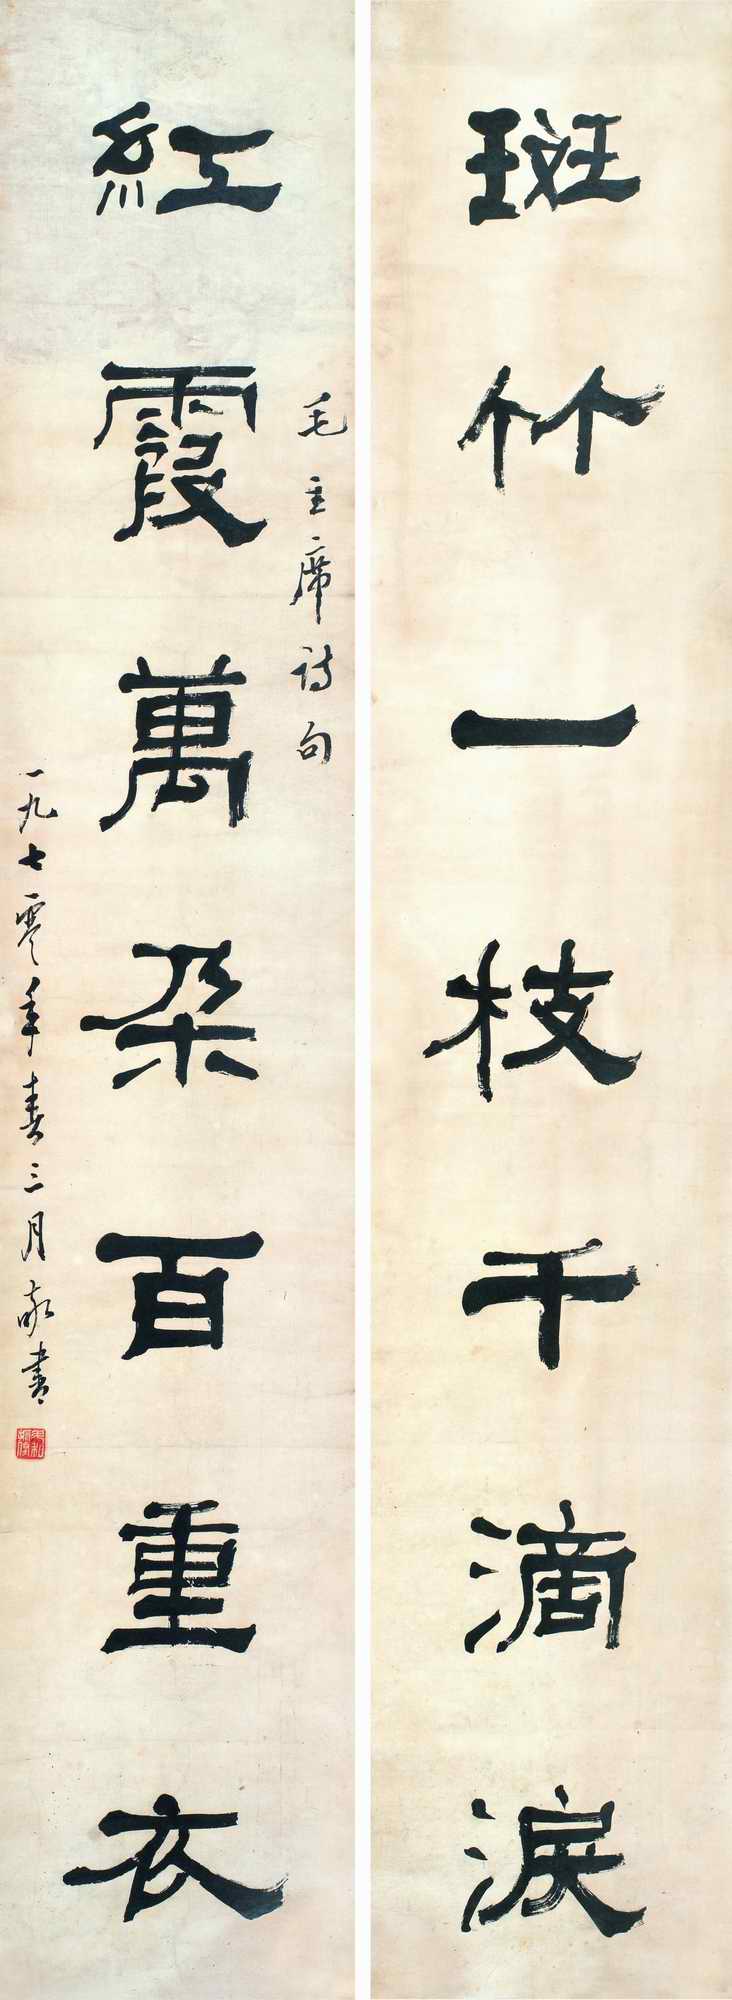 斑竹一枝千滴淚
毛主席诗句
紅霞萬朵百重衣
一九七零年春三月
書